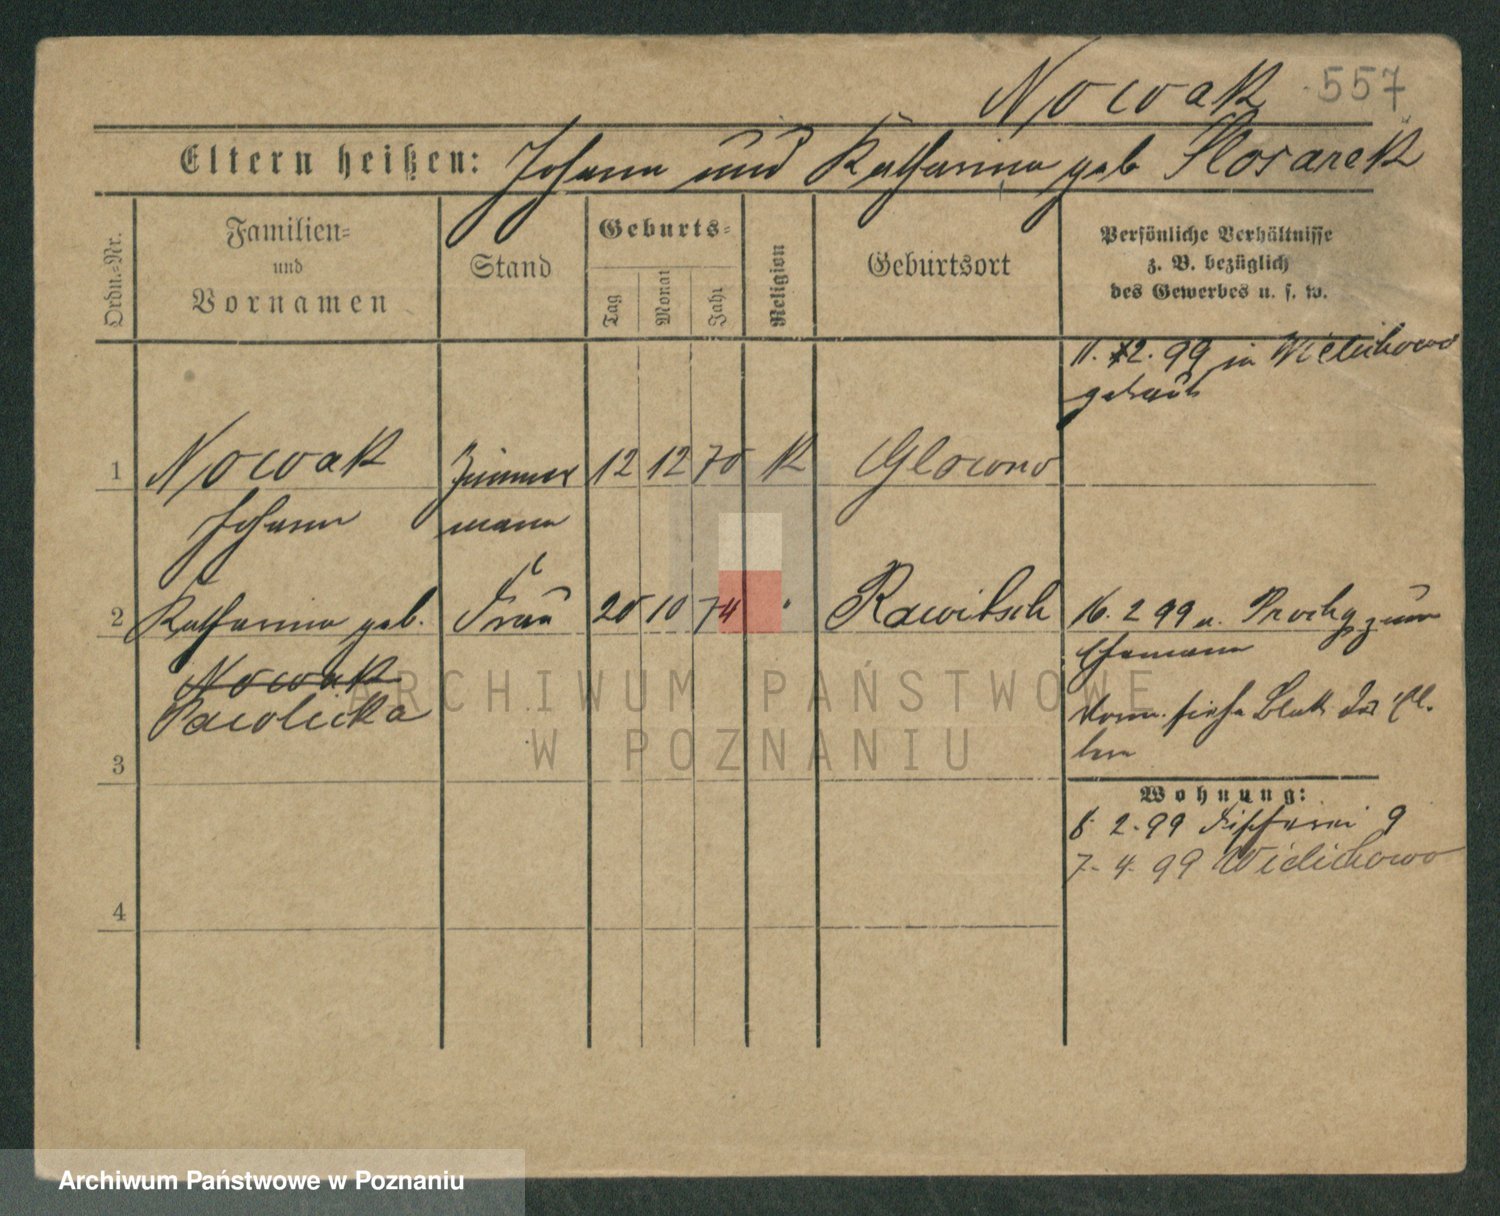 Nowak 557
Eltern heißen: Johann und Katharina geb
Ordn.-Nr.
Familien- und Vornamen
Stand
Geburts-
Tag
Monat
Jahr
Religion
Geburtsort
Persönliche Verhältnisse
z. B. bezüglich
des Gewerbes u. s. w.
11. 12. 99 in Wielichowo
getraut
1 Nowak Zimmer 12 12 70 K Glowno
Johann mann
2 Katharina geb. Frau 20 10 74 " Rawitsch 16. 2 99 zum
Nowak Ehemann
Pawolicka
Vorm. siehe Blatt der
3
Wohnung:
2. 99 Fischerei 9
7. 4. 99 Wielichowo
4
ARCHIWUM PAŃSTWOWE
W POZNANIU
Archiwum Państwowe w Poznaniu